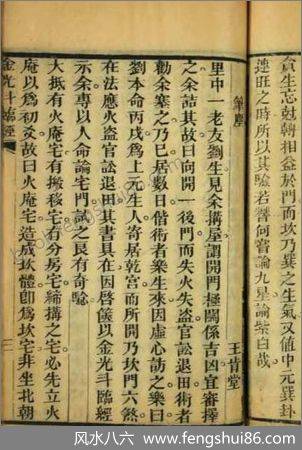 貪生忘尅輔相益於門而坎乃巽之生氣又値中元巽卦
連旺之時所以其驗若響何審論九星論紫白哉
筆塵
王肯堂
里中一老友劉生見余搆屋謂開門極關係吉凶宜審擇
之余詰其故曰向開一後門而失火失盜官訟退田術者
勸余塞之乃已居數日偕術者樂生來因虛心訪之樂曰
劉本命丙戌爲上元生人寄居乾宮而所開乃坎門六煞
在法應火盜官訟退田其書具在因啓篋以金光斗臨經
示余專以人命論宅門試之良有奇驗
大抵有火庵宅有搬移宅有分房宅締搆之宅必先立火
庵以爲初爻故曰火庵宅造成坎體卽爲坎宅非坐北朝
金光斗臨經
三
风水八六 www.fengshui86.com